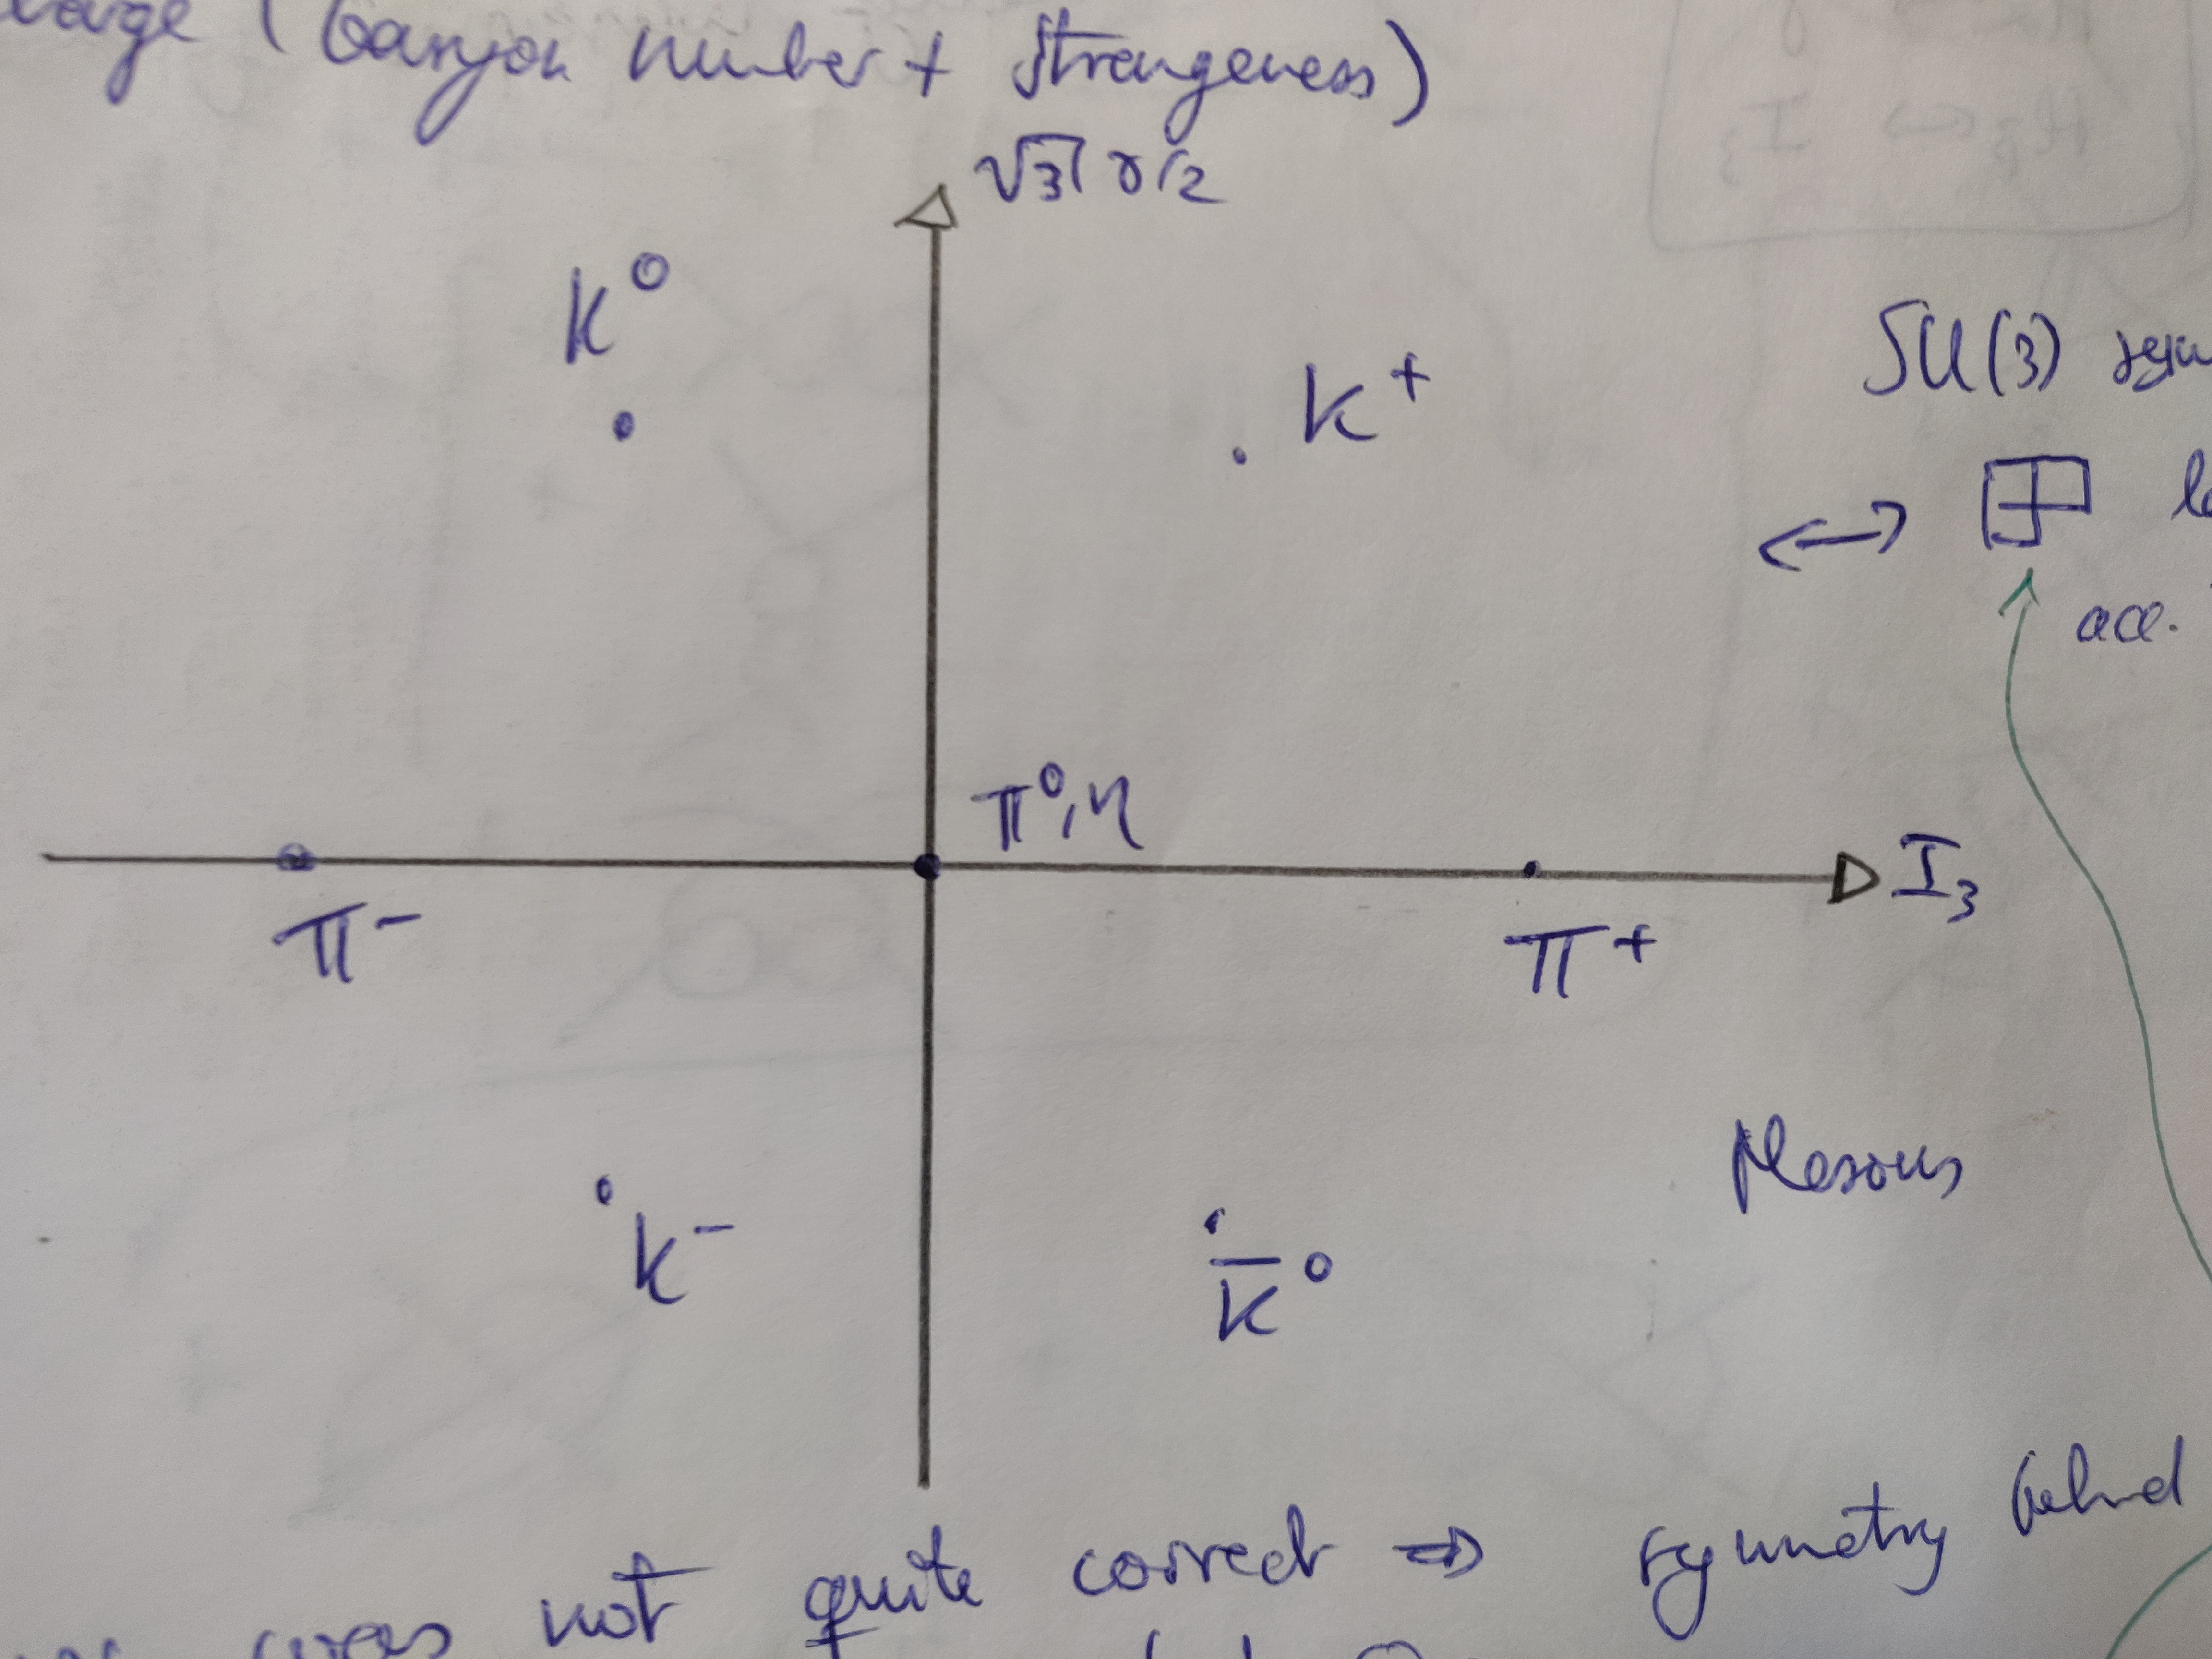 (baryon number + strangeness)
√3 Y/2
K⁰
K⁺
SU(3)
↔
acc.
π⁰, η
I₃
π⁻
π⁺
Mesons
K⁻
K̅⁰
was not quite correct ⇒ symmetry behind